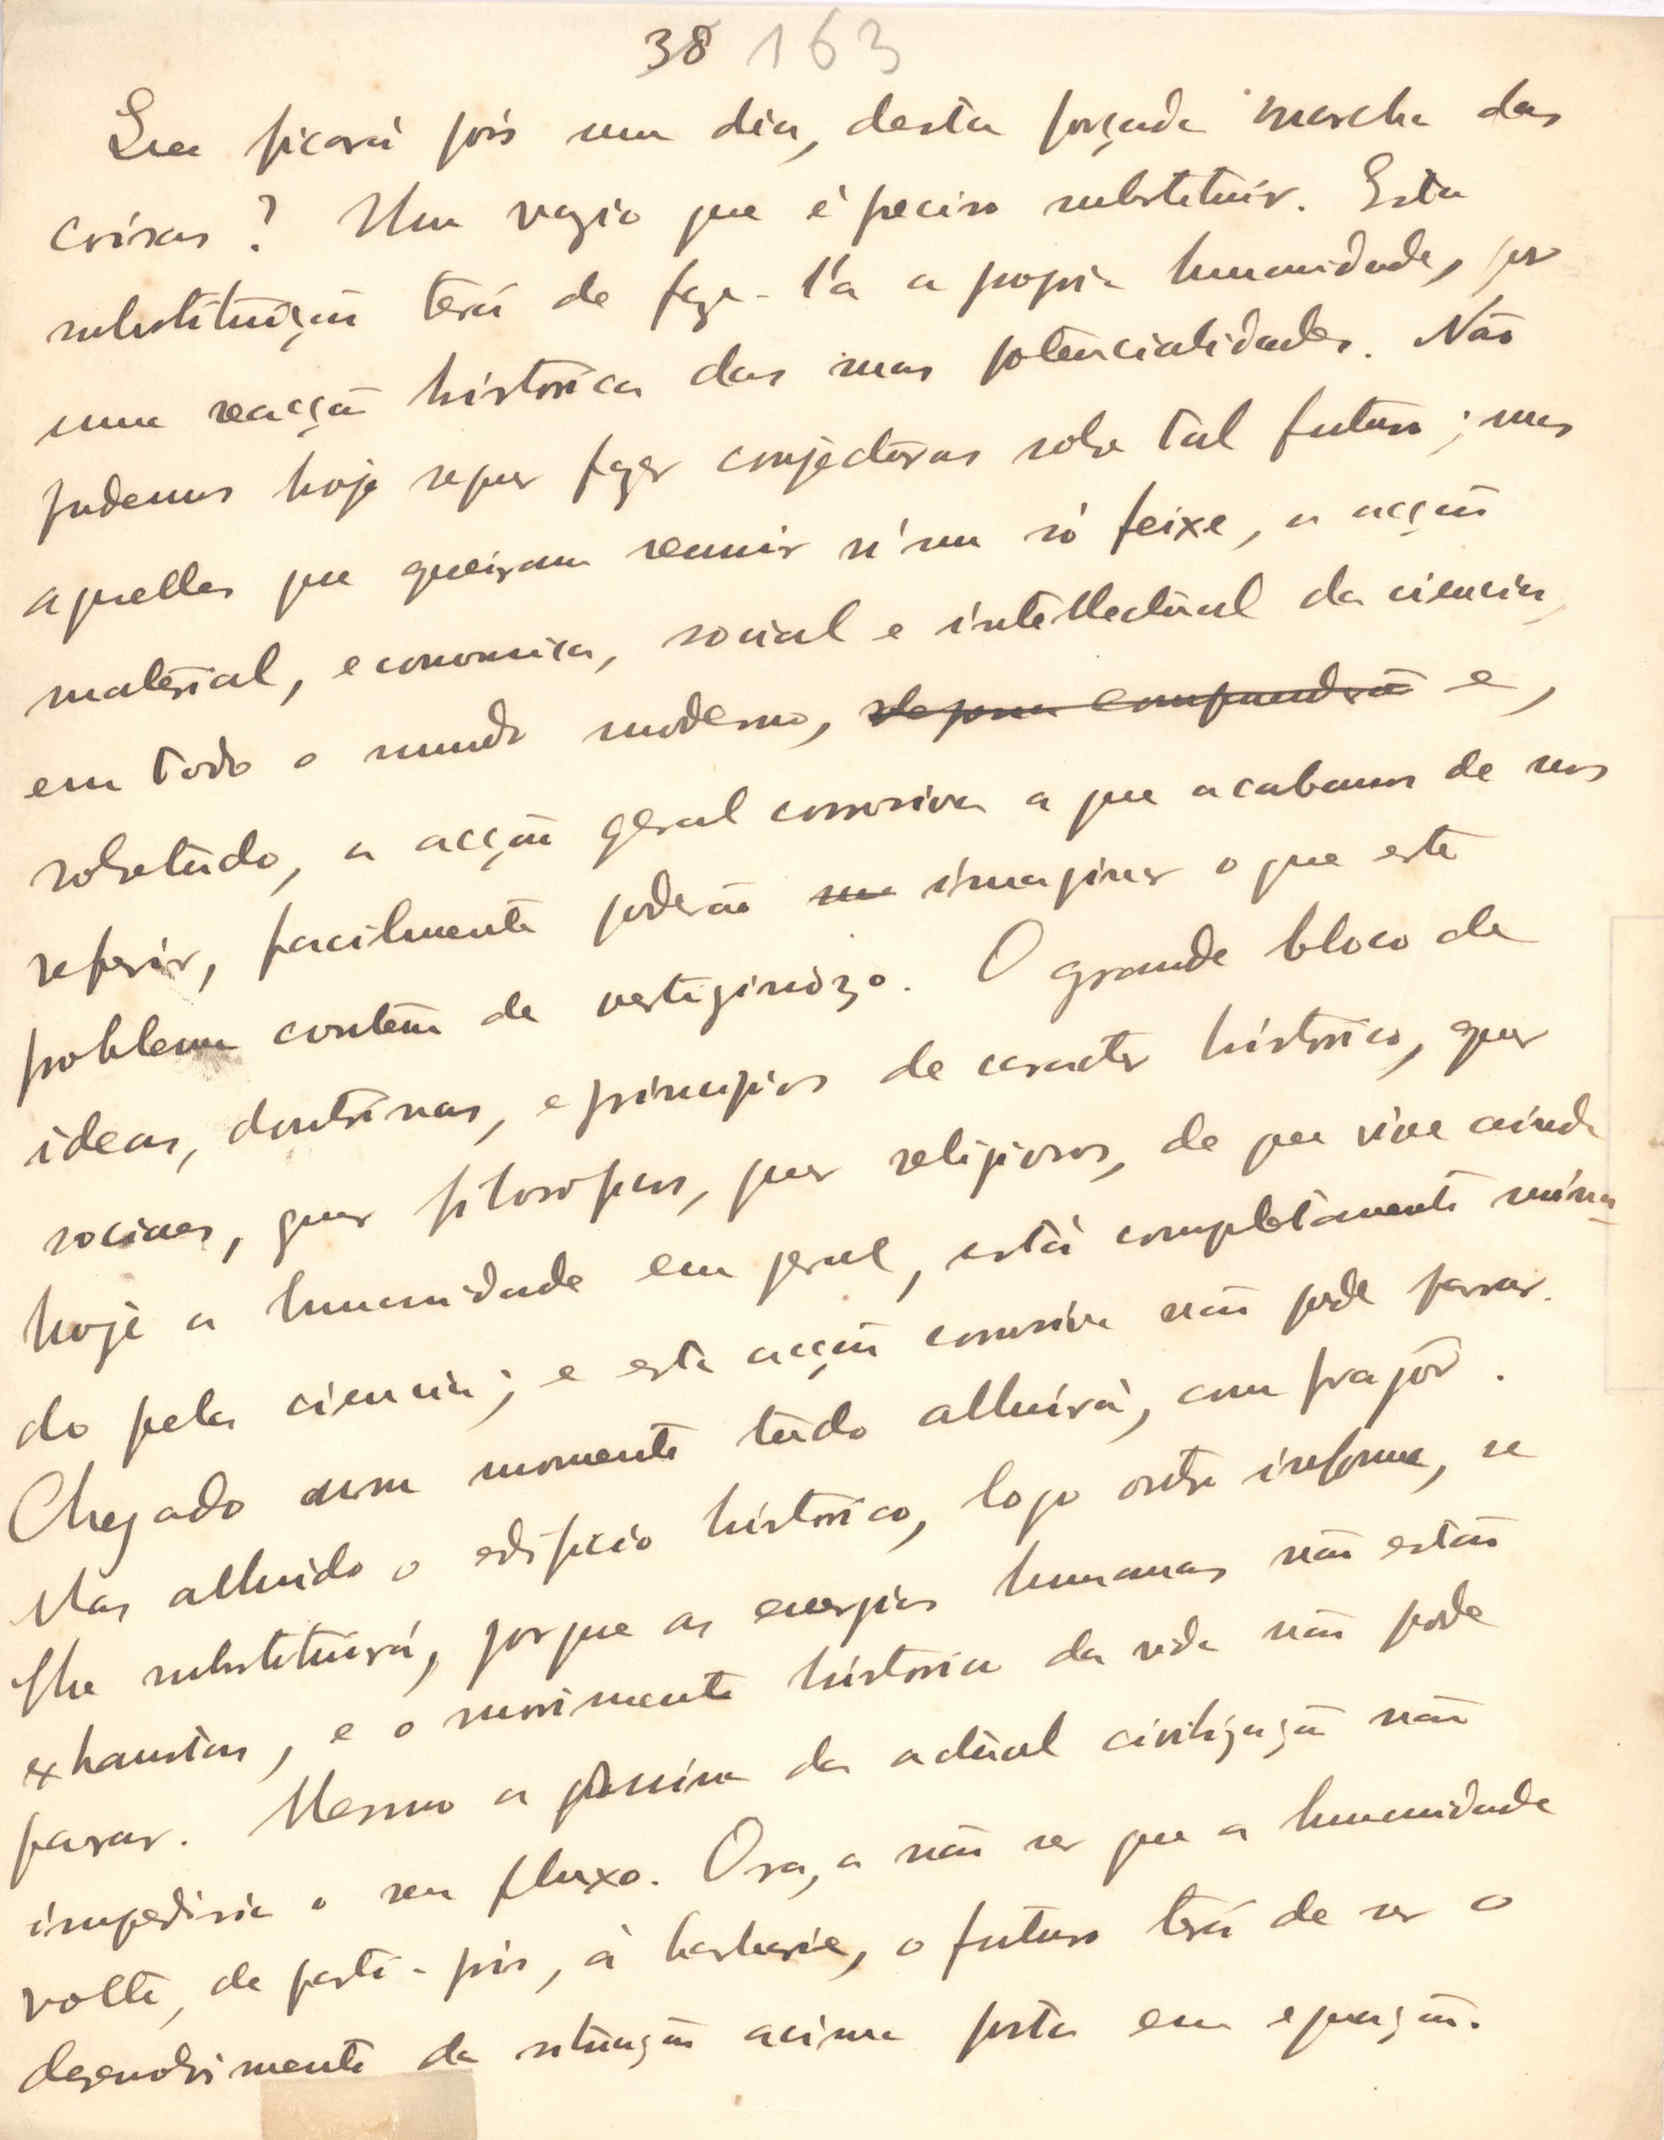 38 163
Que ficará pois um dia, desta forçada marcha das
coisas? Um vazio que é preciso substituir. Esta
substituição terá de faze-l'a a propria humanidade, por
uma reacção historica das suas potencialidades. Não
podemos hoje sequer fazer conjecturas sobre tal futuro; mas
aquelles que queiram reunir n'um só feixe, a acção
material, economica, social e intellectual da sciencia,
em todo o mundo moderno, e,
sobretudo, a acção geral corrosiva a que acabamos de nos
referir, facilmente poderão imaginar o que este
problema contém de vertiginozo. O grande bloco de
ideas, doutrinas, e principios de caracter historico, quer
sociaes, quer filosoficos, quer religiosos, de que vive ainda
hoje a humanidade em geral, está completamente mina-
do pela sciencia; e esta acção corrosiva não pode parar.
Chegado um momento tudo alluirá, com fragôr.
Mas alluido o edificio historico, logo outro informe, se
lhe substituirá, porque as energias humanas não estão
exhaustas, e o movimento historico da vida não pode
parar. Mesmo a ruina da actual civilização não
impediria o seu fluxo. Ora, a não ser que a humanidade
volte, de parti-pris, á barbarie, o futuro terá de ser o
desenvolvimento da situação acima posta em equação.